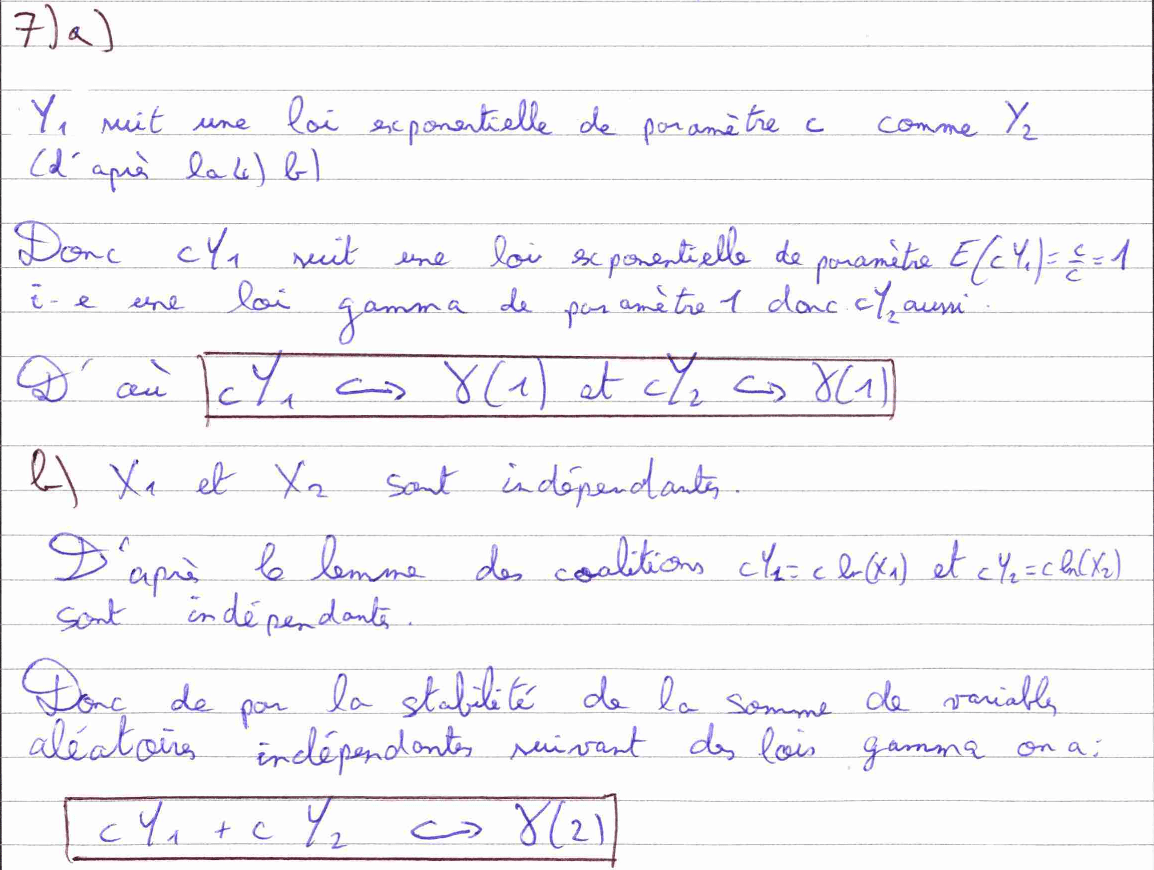 7)a)
Y₁ suit une loi exponentielle de paramètre c comme Y₂
(d'après la 4) b)
Donc cY₁ suit une loi exponentielle de paramètre E(cY₁)=c/c=1
i-e une loi gamma de paramètre 1 donc cY₂ aussi.
D'où cY₁ ↪ γ(1) et cY₂ ↪ γ(1)
b) X₁ et X₂ sont indépendantes.
D'après le lemme des coalitions cY₁=c ln(X₁) et cY₂=c ln(X₂)
sont indépendantes.
Donc de par la stabilité de la somme de variables
aléatoires indépendantes suivant des lois gamma on a:
cY₁ + cY₂ ↪ γ(2)